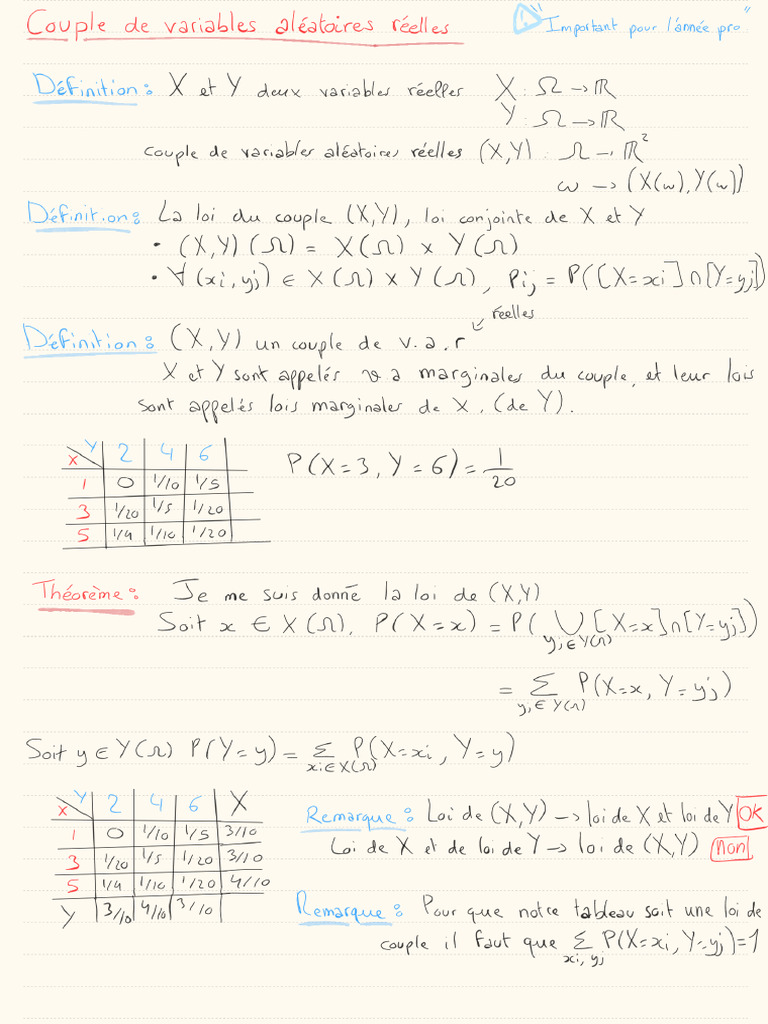 Couple de variables aléatoires réelles
"Important pour l'année pro"
Définition : X et Y deux variables réelles X : Ω → ℝ
Y : Ω → ℝ
couple de variables aléatoires réelles (X,Y) : Ω → ℝ²
ω → (X(ω), Y(ω))
Définition : La loi du couple (X,Y), loi conjointe de X et Y
• (X,Y)(Ω) = X(Ω) × Y(Ω)
• ∀ (xi, yj) ∈ X(Ω) × Y(Ω), Pij = P([X=xi]∩[Y=yj])
réelles
Définition : (X,Y) un couple de v.a.r
X et Y sont appelés v a marginales du couple, et leur lois
sont appelés lois marginales de X, (de Y).
X Y 2 4 6
1 0 1/10 1/5
3 1/20 1/5 1/20
5 1/4 1/10 1/20
P(X=3, Y=6) = 1/20
Théorème : Je me suis donné la loi de (X,Y)
Soit x ∈ X(Ω), P(X=x) = P(⋃ yj∈Y(Ω) [X=x]∩[Y=yj])
= Σ yj∈Y(Ω) P(X=x, Y=yj)
Soit y ∈ Y(Ω) P(Y=y) = Σ xi∈X(Ω) P(X=xi, Y=y)
X Y 2 4 6 X
1 0 1/10 1/5 3/10
3 1/20 1/5 1/20 3/10
5 1/4 1/10 1/20 4/10
Y 3/10 4/10 3/10
Remarque : Loi de (X,Y) → loi de X et loi de Y OK
Loi de X et de loi de Y → loi de (X,Y) Non
Remarque : Pour que notre tableau soit une loi de
couple il faut que Σ xi, yj P(X=xi, Y=yj)=1